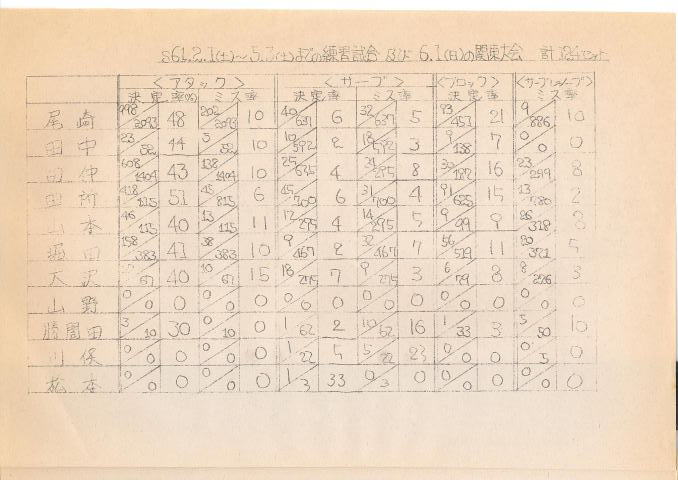 S61.2.1(土)～5.3(土)までの練習試合 及び 6.1(日)の関東大会 計124セット
<アタック> <サーブ> <ブロック> <サーブレシーブ>
決定率(%) ミス率 決定率 ミス率 決定率 ミス率
尾崎 998/2093 48 202/2093 10 40/637 6 32/637 5 93/453 21 9/886 10
田中 23/52 44 5/52 10 10/592 2 18/592 3 9/138 7 0/0 0
田仲 608/1404 43 138/1404 10 25/635 4 31/295 8 30/187 16 23/299 8
田所 418/815 51 45/815 6 45/700 6 31/700 4 91/625 15 13/780 2
山本 46/115 40 13/115 11 12/295 4 14/295 5 9/99 9 26/318 8
堀田 158/383 41 38/383 10 9/467 2 32/467 7 56/519 11 20/371 5
大沢 /67 40 10/67 15 18/275 7 9/275 3 6/79 8 8/256 3
山野 0/0 0 0/0 0 0/0 0 0/0 0 0/0 0 0/0 0
勝間田 3/10 30 0/10 0 1/62 2 10/62 16 1/33 3 5/50 10
川俣 0/0 0 0/0 0 1/22 5 5/22 23 0/0 0 0/5 0
松本 0/0 0 0/0 0 1/3 33 0/3 0 0/0 0 0/0 0